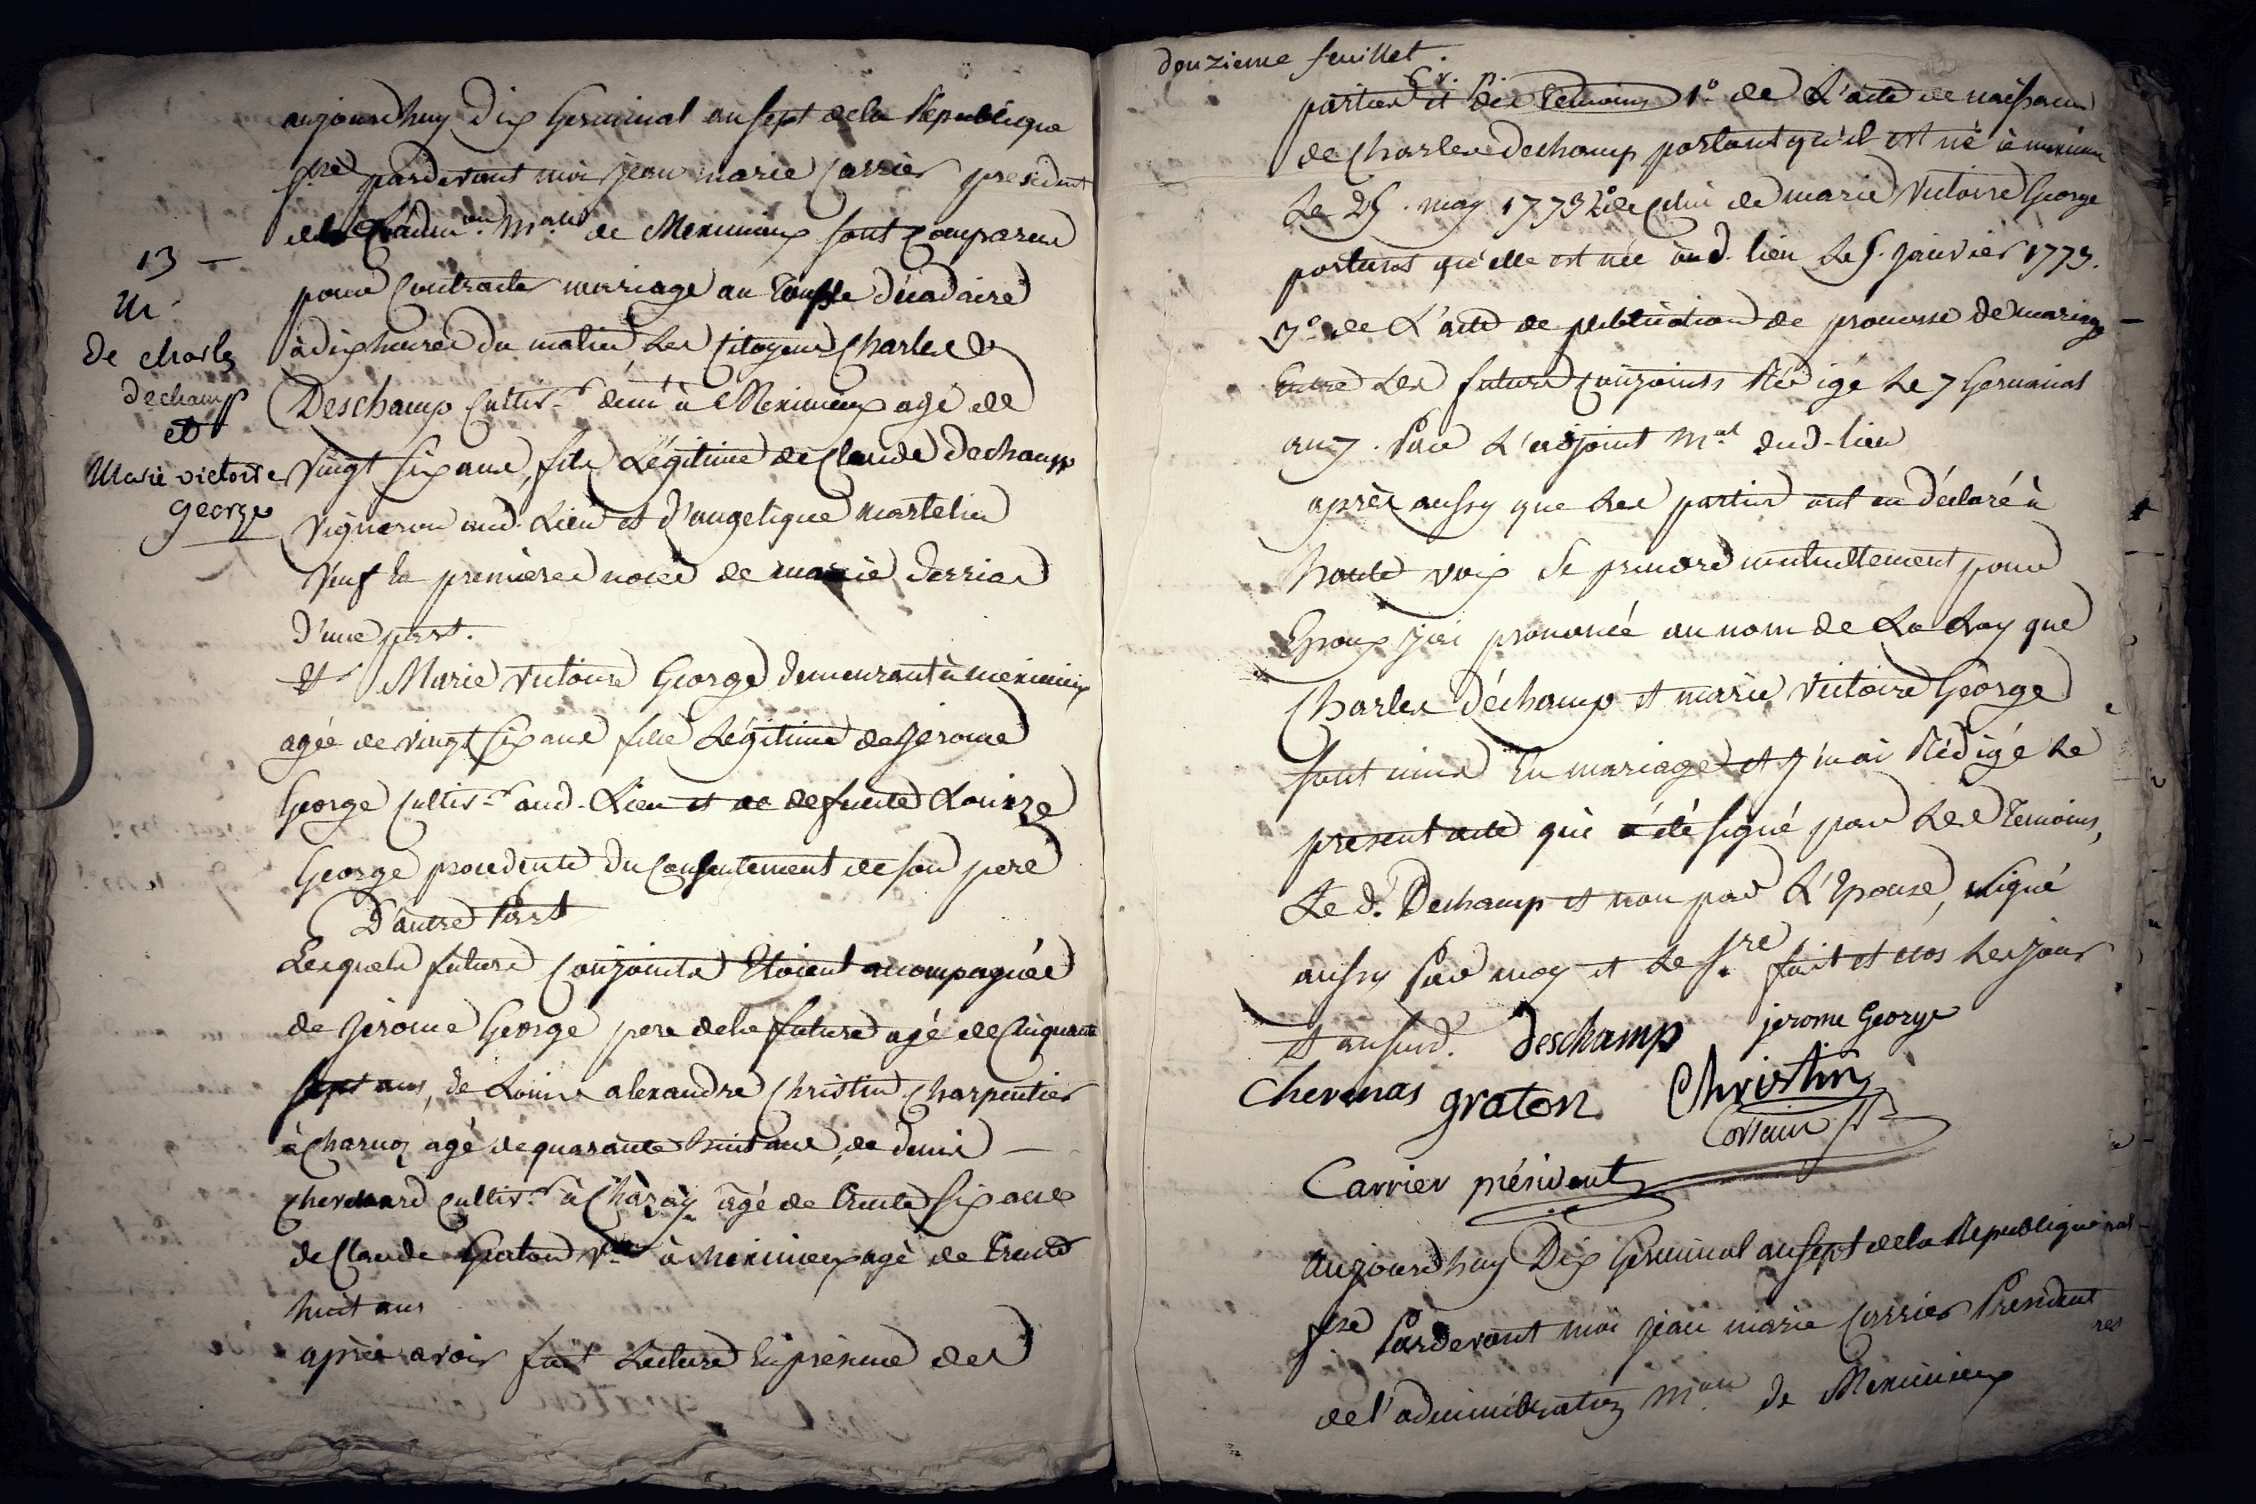 13
M.
de Charles
dechamp
et
Marie victoire
george
aujourdhuy Dix Germinal an Sept de la Republique
f.re pardevant moi jean marie Carrier president
de L'adm.on M.ale de Meximieux Sont Comparus
pour Contracter mariage au Temple décadaire
à dix heures du matin, Les Citoyens Charles
Deschamp Cultiv.r dem.t à Meximieux agé de
vingt six ans, fils Légitime de Claude Dechamp
vigneron aud. Lieu et d'angelique martelin
veuf en premieres noces de marie
D'une part.
et Marie victoire George demeurant à meximieux
agée de vingt six ans fille Légitime de Jerome
George Cultiv.r aud. Lieu et de defunte Louise
George procedente du Consentement de son pere
D'autre Part
Lesquels futurs Conjoints Etoient acompagnés
de Jerome George pere de la future agé de Cinquante
sept ans, de Louis alexandre Christin Charpentier
à Charnoz agé de quarante huit ans, de denis
Cultiv.r à agé de trente six ans
de Claude V.on à Meximieux agé de Trente
huit ans
après avoir fait Lecture En presence des
douzieme feuillet.
parties et des temoins 1.o de L'acte de naissance
de Charles Dechamp portant qu'il est né à
Le 25. may 1773 2.o de Celui de marie Victoire George
portant qu'elle est née aud. lieu Le 5. Janvier 1773.
3.o de L'acte de publication de promesse de mariage
Entre Les futurs Conjoints Rédigé Le 7 Germinal
an 7. Par L'adjoint M.al dud. lieu
après aussy que Les parties ont eu déclaré à
haute voix Se prendre mutuellement pour
Epoux J'ai prononcé au nom de La Loy que
Charles Dechamp et marie Victoire George
sont unis En mariage et J'mai Rédigé Le
present acte qui a été signé par Les Temoins,
Le d. Dechamp et non par L'Epouse, signé
aussy Par moy et Le S.re fait et clos Les jour
et an susd. deschamp jerome George
graton Christin
Carrier président
Aujourdhuy Dix Germinal an Sept de la Republique
f.re Pardevant moi jean marie Carrier President
de l'administration M.ale de Meximieux